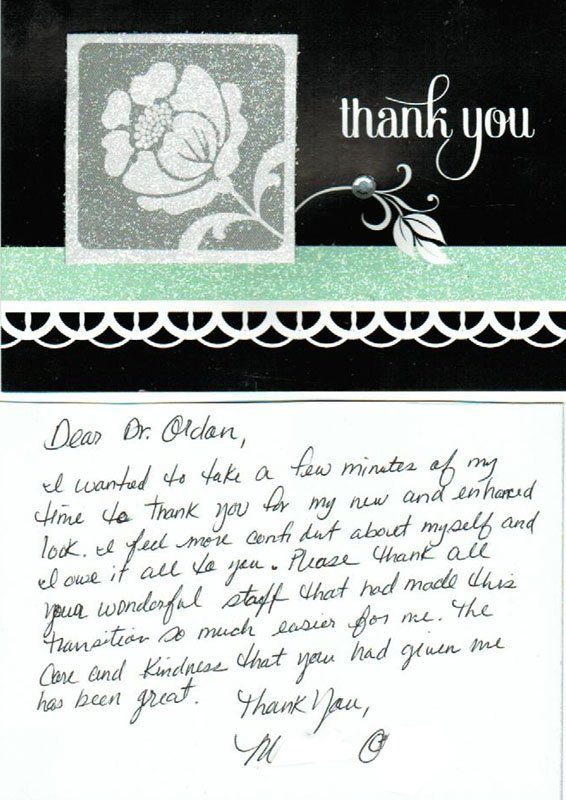 thank you
Dear Dr. Ordon,
I wanted to take a few minutes of my
time to thank you for my new and enhanced
look. I feel more confident about myself and
I owe it all to you. Please thank all
your wonderful staff that had made this
transition so much easier for me. The
care and kindness that you had given me
has been great.
Thank You,
M O